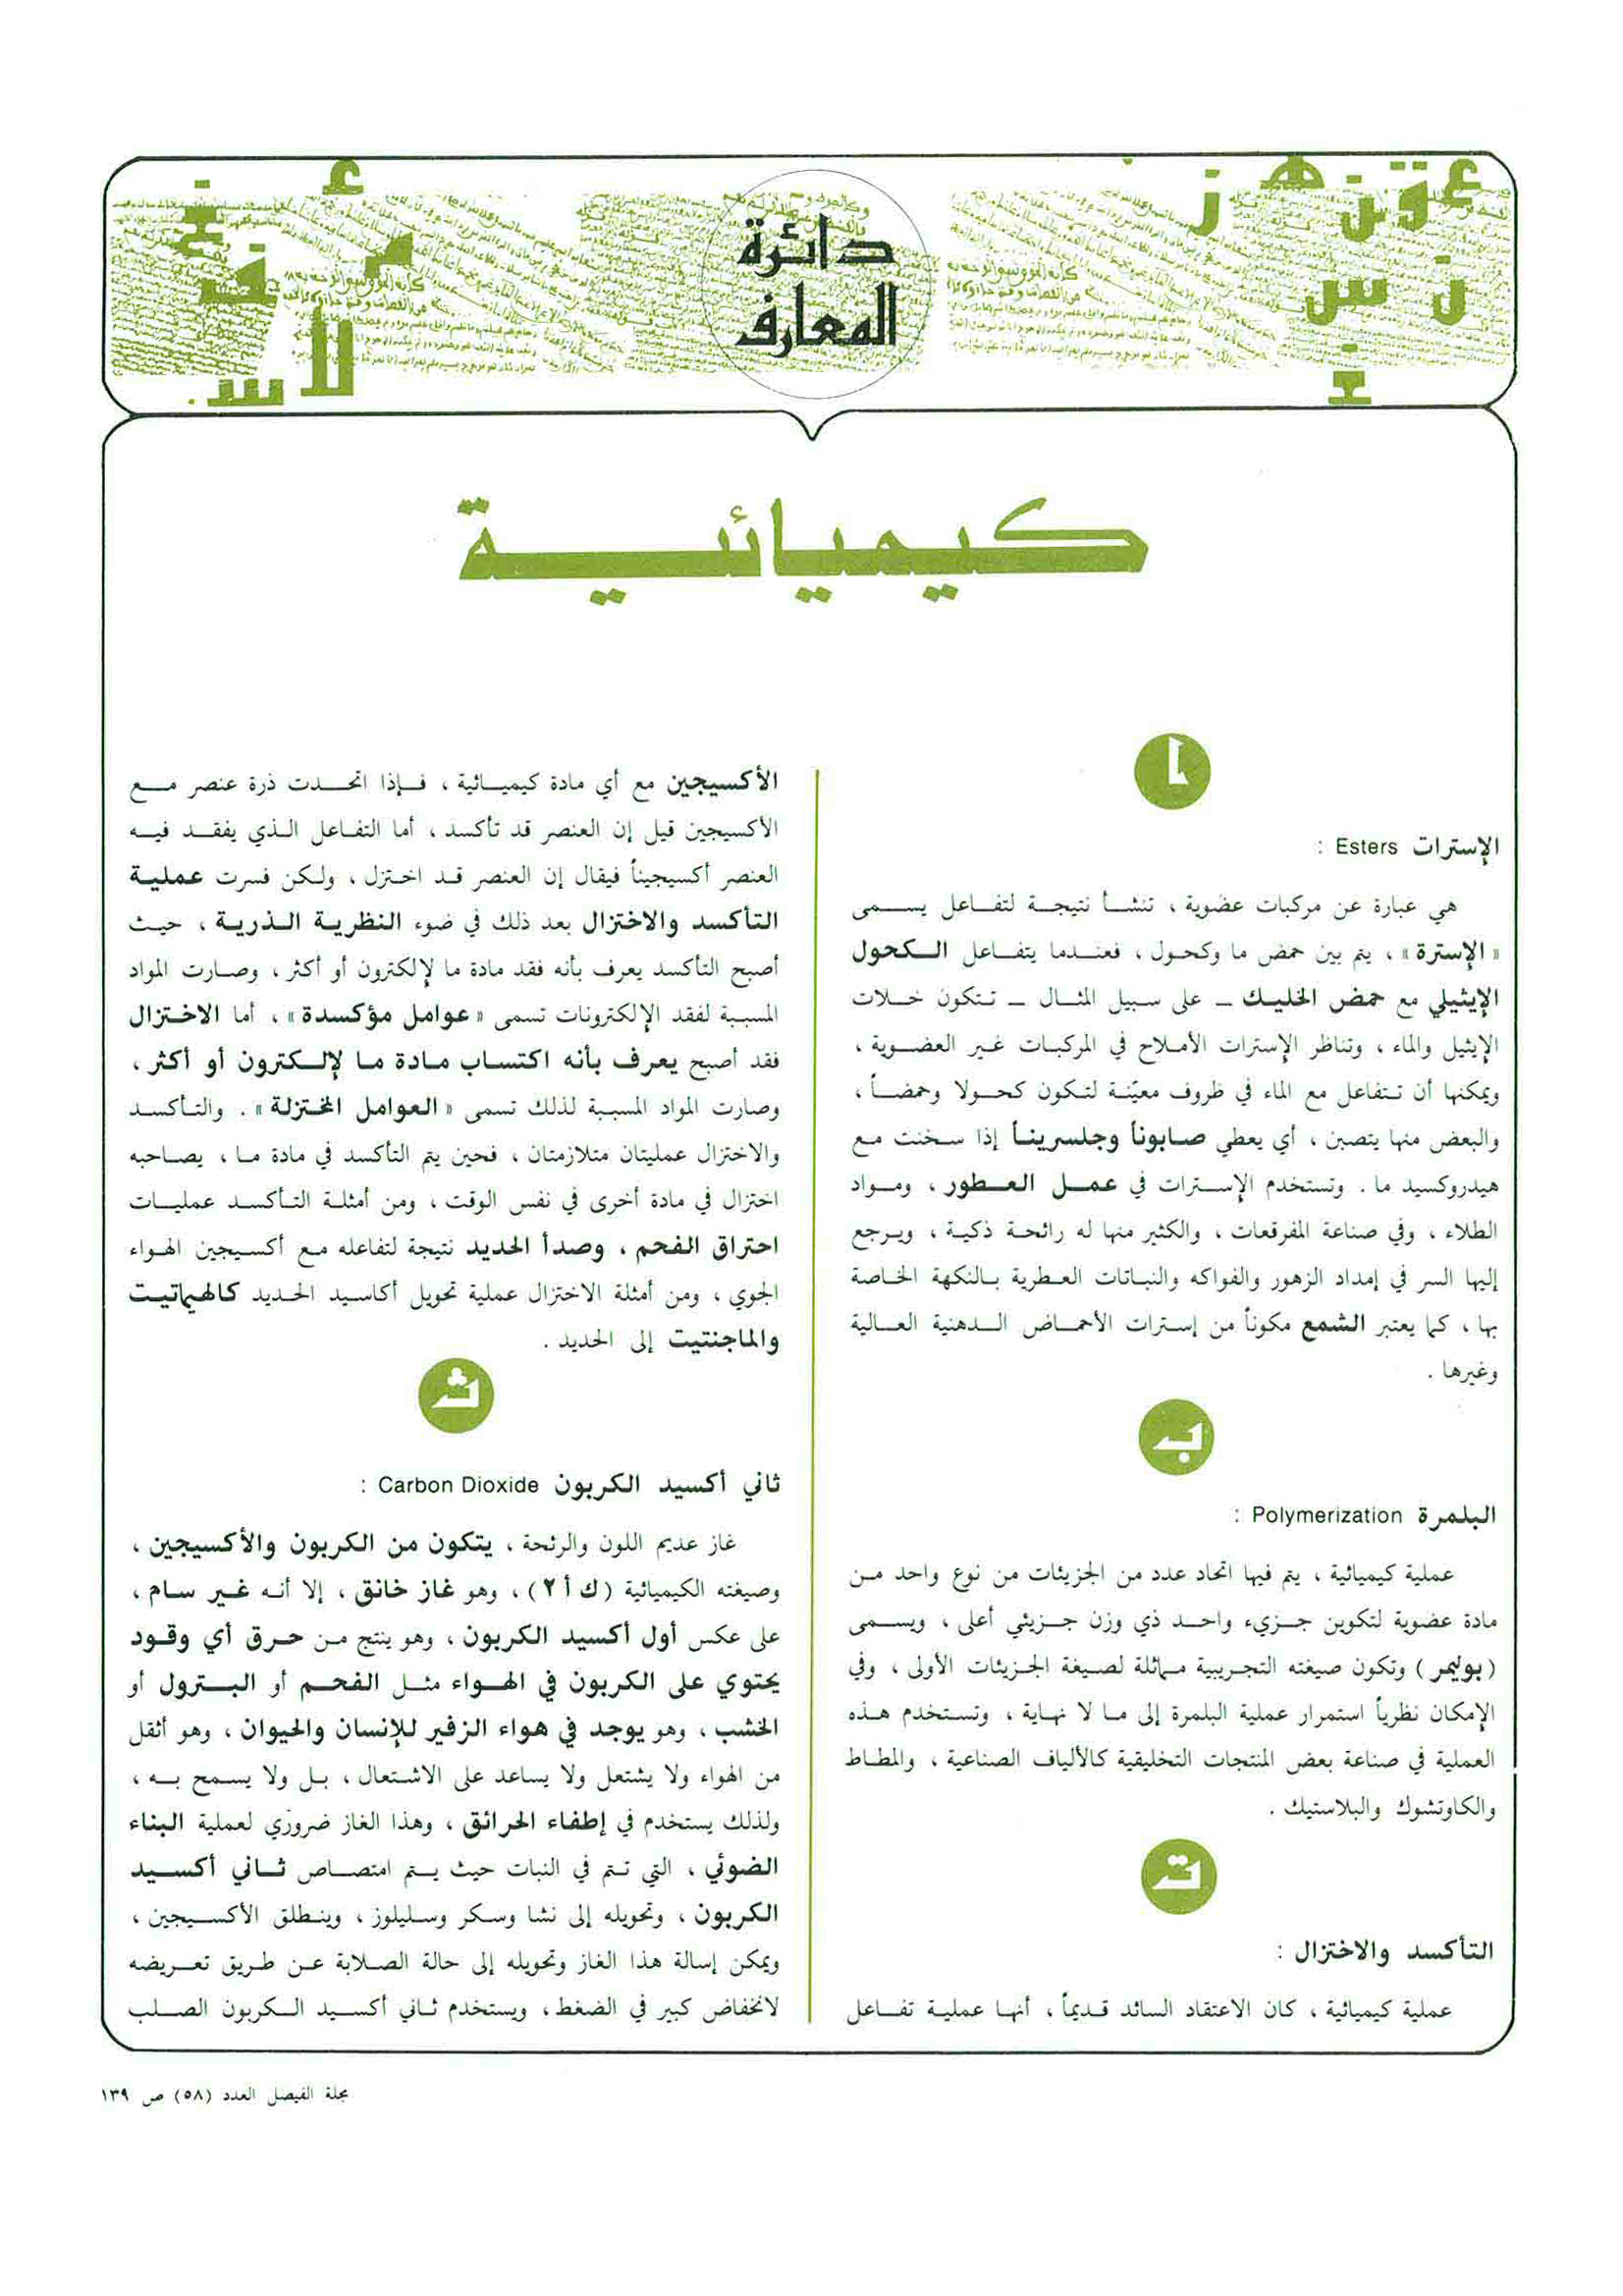 دائرة
المعارف
كيميائية
ا
الإسترات Esters :
هي عبارة عن مركبات عضوية ، تنشأ نتيجة لتفاعل يسمى
« الإسترة » ، يتم بين حمض ما وكحول ، فعندما يتفاعل الكحول
الإيثيلي مع حمض الخليك ــ على سبيل المثال ــ تتكون خلات
الإيثيل والماء ، وتناظر الإسترات الأملاح في المركبات غير العضوية ،
ويمكنها أن تتفاعل مع الماء في ظروف معيّنة لتكون كحولا وحمضاً ،
والبعض منها يتصبن ، أي يعطي صابوناً وجلسريناً إذا سخنت مع
هيدروكسيد ما . وتستخدم الإسترات في عمل العطور ، ومواد
الطلاء ، وفي صناعة المفرقعات ، والكثير منها له رائحة ذكية ، ويرجع
إليها السر في إمداد الزهور والفواكه والنباتات العطرية بالنكهة الخاصة
بها ، كما يعتبر الشمع مكوناً من إسترات الأحماض الدهنية العالية
وغيرها .
ب
البلمرة Polymerization :
عملية كيميائية ، يتم فيها اتحاد عدد من الجزيئات من نوع واحد من
مادة عضوية لتكوين جزيء واحد ذي وزن جزيئي أعلى ، ويسمى
( بوليمر ) وتكون صيغته التجريبية مماثلة لصيغة الجزيئات الأولى ، وفي
الإمكان نظرياً استمرار عملية البلمرة إلى ما لا نهاية ، وتستخدم هذه
العملية في صناعة بعض المنتجات التخليقية كالألياف الصناعية ، والمطاط
والكاوتشوك والبلاستيك .
ت
التأكسد والاختزال :
عملية كيميائية ، كان الاعتقاد السائد قديماً ، أنها عملية تفاعل
الأكسيجين مع أي مادة كيميائية ، فإذا اتحدت ذرة عنصر مع
الأكسيجين قيل إن العنصر قد تأكسد ، أما التفاعل الذي يفقد فيه
العنصر أكسيجيناً فيقال إن العنصر قد اختزل ، ولكن فسرت عملية
التأكسد والاختزال بعد ذلك في ضوء النظرية الذرية ، حيث
أصبح التأكسد يعرف بأنه فقد مادة ما لإلكترون أو أكثر ، وصارت المواد
المسببة لفقد الإلكترونات تسمى « عوامل مؤكسدة » ، أما الاختزال
فقد أصبح يعرف بأنه اكتساب مادة ما لإلكترون أو أكثر ،
وصارت المواد المسببة لذلك تسمى « العوامل المختزلة » . والتأكسد
والاختزال عمليتان متلازمتان ، فحين يتم التأكسد في مادة ما ، يصاحبه
اختزال في مادة أخرى في نفس الوقت ، ومن أمثلة التأكسد عمليات
احتراق الفحم ، وصدأ الحديد نتيجة لتفاعله مع أكسيجين الهواء
الجوي ، ومن أمثلة الاختزال عملية تحويل أكاسيد الحديد كالهيماتيت
والماجنتيت إلى الحديد .
ث
ثاني أكسيد الكربون Carbon Dioxide :
غاز عديم اللون والرئحة ، يتكون من الكربون والأكسيجين ،
وصيغته الكيميائية ( ك أ ٢ ) ، وهو غاز خانق ، إلا أنه غير سام ،
على عكس أول أكسيد الكربون ، وهو ينتج من حرق أي وقود
يحتوي على الكربون في الهواء مثل الفحم أو البترول أو
الخشب ، وهو يوجد في هواء الزفير للإنسان والحيوان ، وهو أثقل
من الهواء ولا يشتعل ولا يساعد على الاشتعال ، بل ولا يسمح به ،
ولذلك يستخدم في إطفاء الحرائق ، وهذا الغاز ضروري لعملية البناء
الضوئي ، التي تتم في النبات حيث يتم امتصاص ثاني أكسيد
الكربون ، وتحويله إلى نشا وسكر وسليلوز ، وينطلق الأكسيجين ،
ويمكن إسالة هذا الغاز وتحويله إلى حالة الصلابة عن طريق تعريضه
لانخفاض كبير في الضغط ، ويستخدم ثاني أكسيد الكربون الصلب
مجلة الفيصل العدد (٥٨) ص ١٣٩